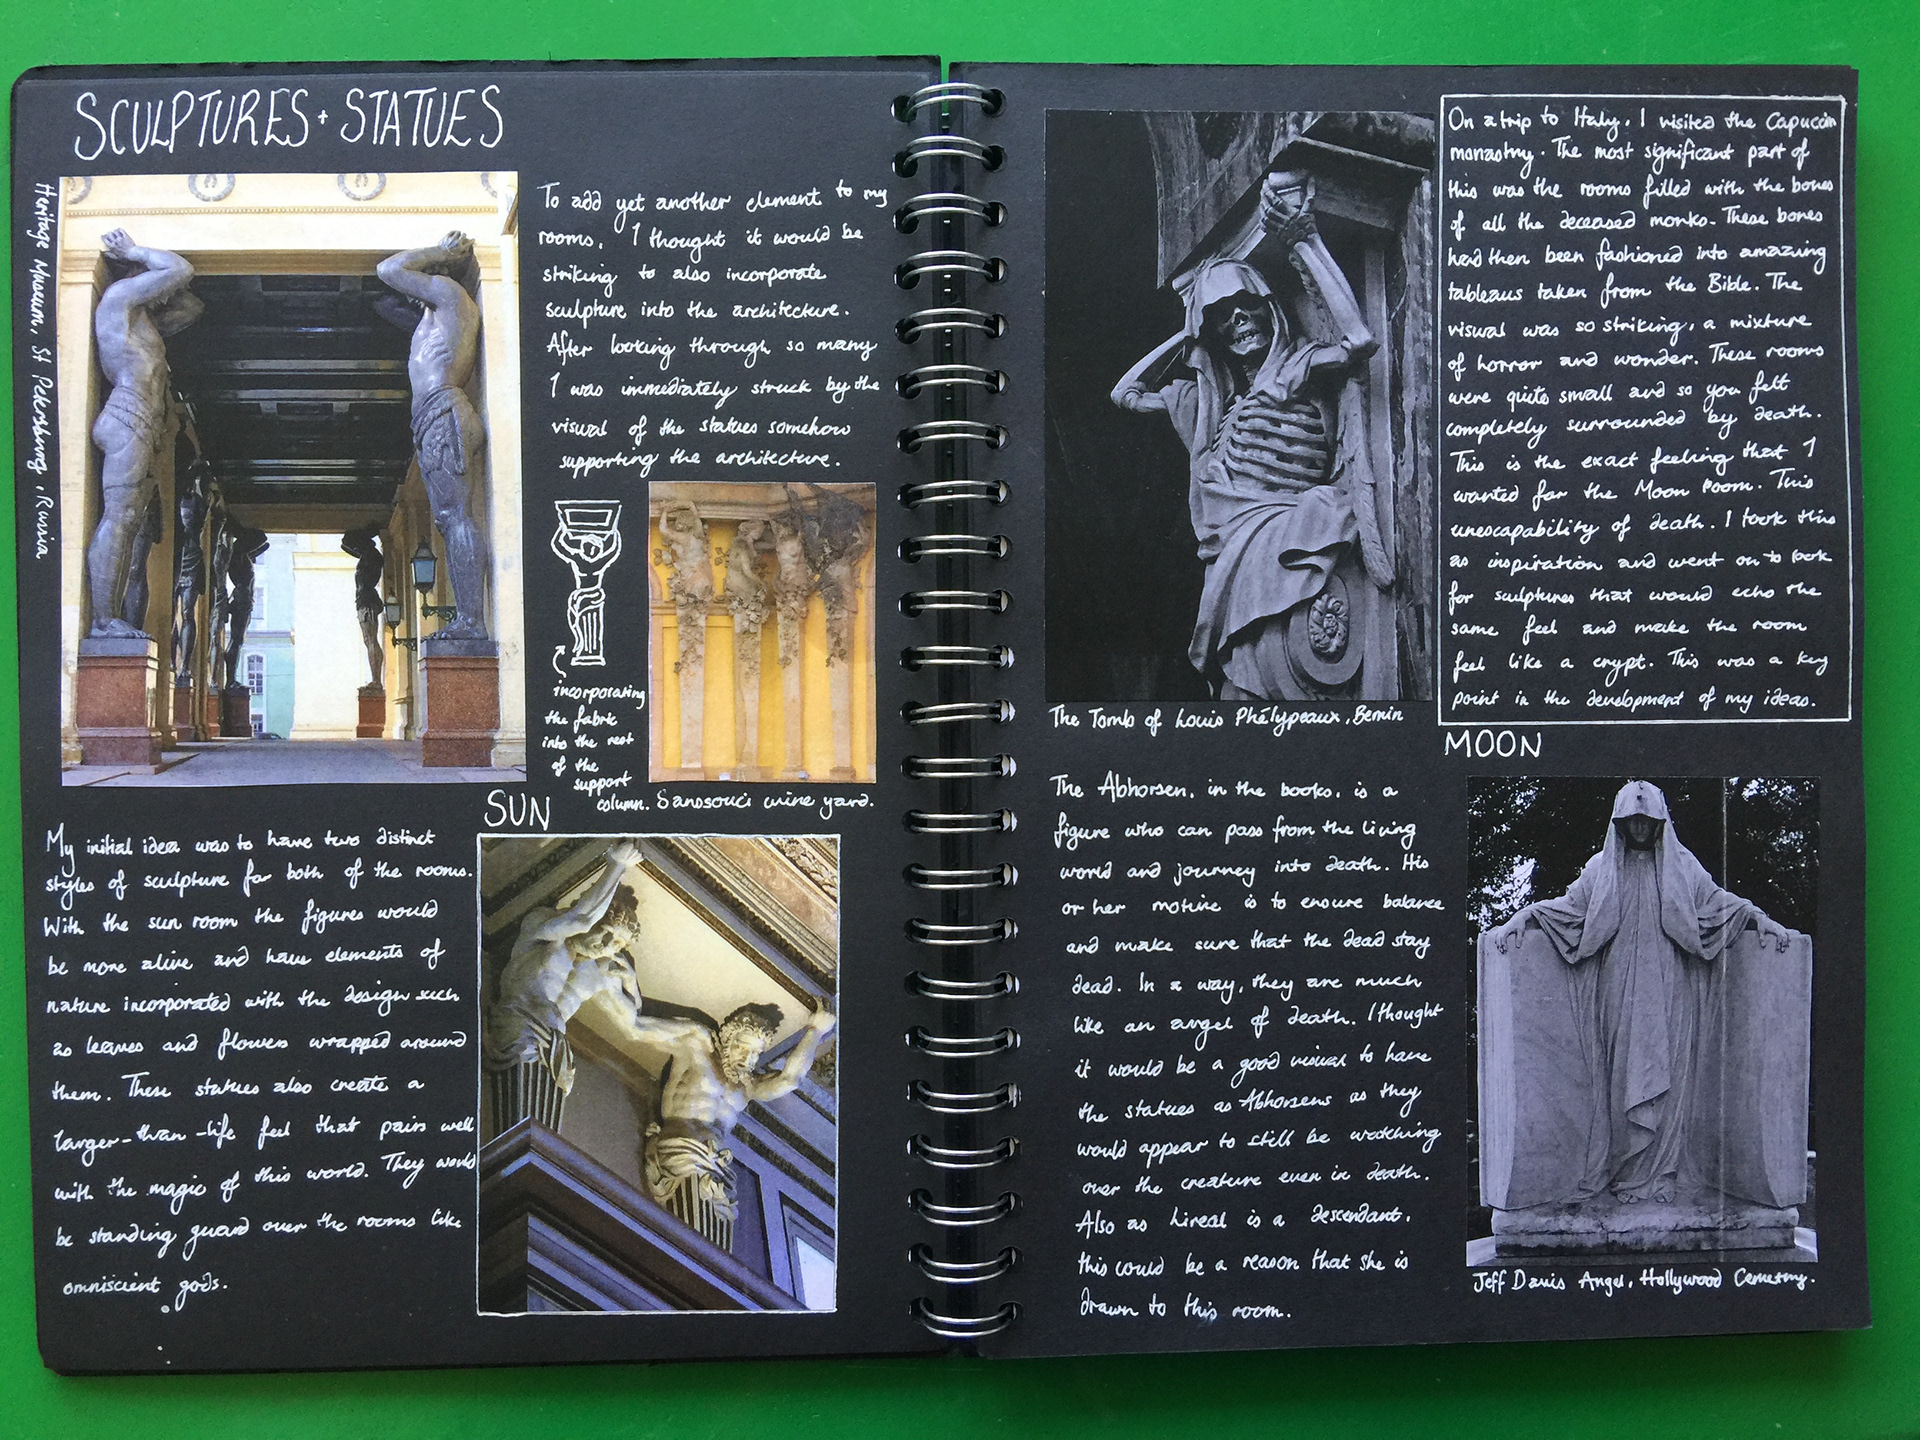 SCULPTURES + STATUES
Heritage Museum, St Petersburg, Russia
To add yet another element to my
rooms, I thought it would be
striking to also incorporate
sculpture into the architecture.
After looking through so many
I was immediately struck by the
visual of the statues somehow
supporting the architecture.
incorporating
the fabric
into the rest
of the
support
column.
Sansouci wine yard.
SUN
My initial idea was to have two distinct
styles of sculpture for both of the rooms.
With the sun room the figures would
be more alive and have elements of
nature incorporated with the design such
as leaves and flowers wrapped around
them. These statues also create a
larger-than-life feel that pairs well
with the magic of this world. They would
be standing guard over the rooms like
omniscient gods.
The Tomb of Louis Phélypeaux, Bernin
On a trip to Italy, I visited the Capuccin
monastry. The most significant part of
this was the rooms filled with the bones
of all the deceased monks. These bones
had then been fashioned into amazing
tableaus taken from the Bible. The
visual was so striking, a mixture
of horror and wonder. These rooms
were quite small and so you felt
completely surrounded by death.
This is the exact feeling that I
wanted for the Moon Room. This
unescapability of death. I took this
as inspiration and went on to look
for sculptures that would echo the
same feel and make the room
feel like a crypt. This was a key
point in the development of my ideas.
MOON
The Abhorsen, in the books, is a
figure who can pass from the living
world and journey into death. His
or her motive is to ensure balance
and make sure that the dead stay
dead. In a way, they are much
like an angel of death. I thought
it would be a good visual to have
the statues as Abhorsens as they
would appear to still be watching
over the creature even in death.
Also as Lireal is a descendant,
this could be a reason that she is
drawn to this room.
Jeff Davis Angel, Hollywood Cemetery.